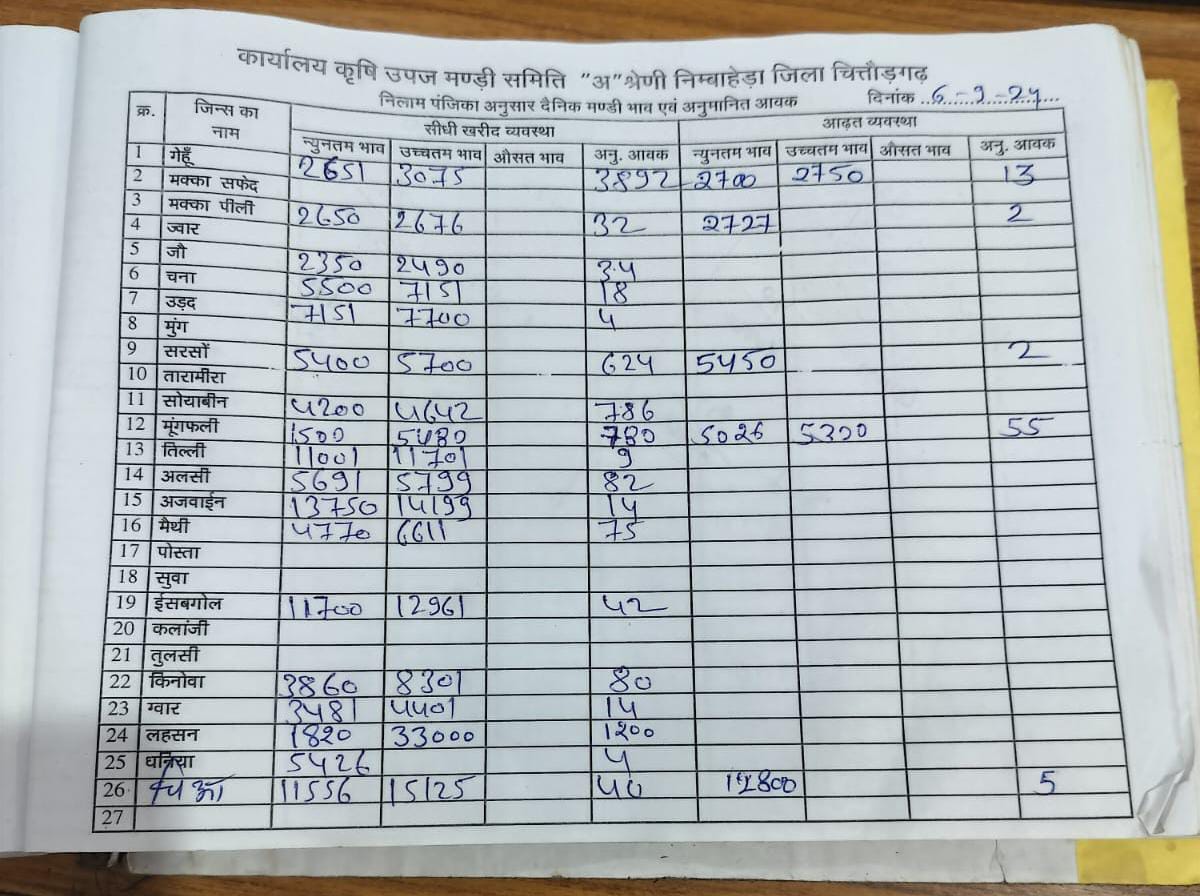 कार्यालय कृषि उपज मण्डी समिति "अ" श्रेणी निम्बाहेड़ा जिला चित्तौड़गढ़
निलाम पंजिका अनुसार दैनिक मण्डी भाव एवं अनुमानित आवक दिनांक ..6....-9..-24....
क्र. जिन्स का नाम सीधी खरीद व्यवस्था आढ़त व्यवस्था
न्युनतम भाव उच्चतम भाव औसत भाव अनु. आवक न्युनतम भाव उच्चतम भाव औसत भाव अनु. आवक
1 गेहूँ 2651 3075 3892 2700 2750 13
2 मक्का सफेद
3 मक्का पीली 2650 2676 32 2727 2
4 ज्वार
5 जौ 2350 2490 34
6 चना 5500 7151 18
7 उड़द 7151 7700 4
8 मुंग
9 सरसों 5400 5700 624 5450 2
10 तारामीरा
11 सोयाबीन 4200 4642 786
12 मूंगफली 1500 5480 780 5026 5300 55
13 तिल्ली 11001 11701 9
14 अलसी 5691 5799 82
15 अजवाईन 13750 14199 14
16 मैथी 4770 6611 75
17 पोस्ता
18 सुवा
19 ईसबगोल 11700 12961 42
20 कलांजी
21 तुलसी
22 किनोवा 3860 8301 80
23 ग्वार 3481 4401 14
24 लहसन 1820 33000 1200
25 धनिया 5426 4
26 11556 15125 40 12800 5
27